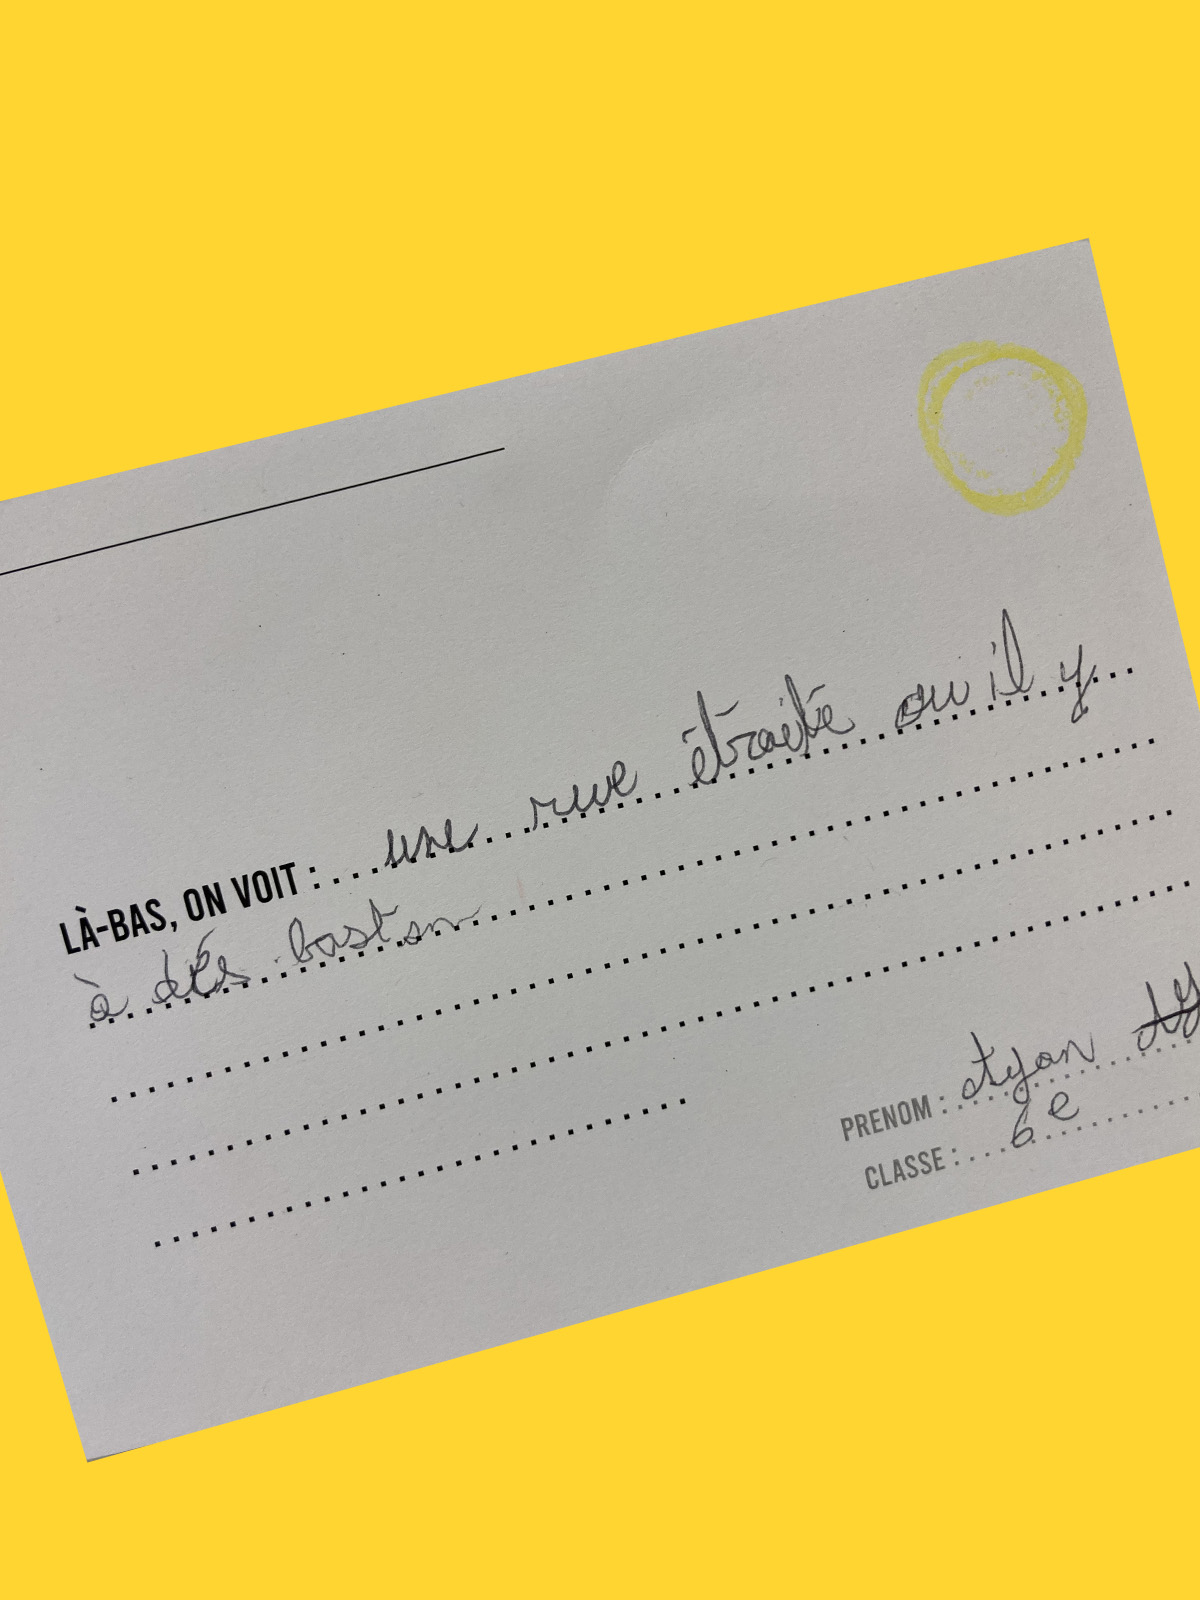 LÀ-BAS, ON VOIT : une rue étraite ou il y
à dés baston
PRENOM : Ayan
CLASSE : 6e